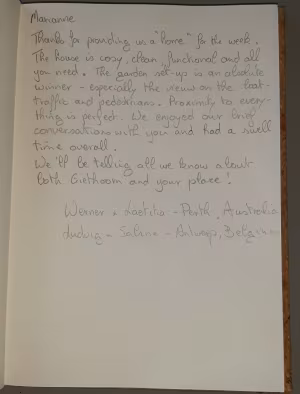 Marianne
Thanks for providing us a "home" for this week.
The house is cosy, clean, functional and all
you need. The garden set-up is an absolute
winner - especially the view on the boat-
traffic and pedestrians. Proximity to every-
thing is perfect. We enjoyed our brief
conversations with you and had a swell
time overall.
We'll be telling all we know about
both Giethoorn and your place!
Werner + Laetitia - Perth, Australia
Ludwig - Sabine - Antwerp, Belgium